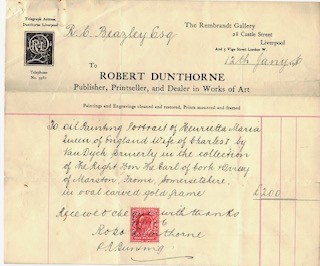 Telegraph Address
Dunthorne Liverpool
The Rembrandt Gallery
28 Castle Street
Liverpool
And 5 Vigo Street London W.
R. C. Beazley Esq
Telephone
12th Jany
To
ROBERT DUNTHORNE
Publisher, Printseller, and Dealer in Works of Art
Paintings and Engravings cleaned and restored, Prints mounted and framed
To Oil Painting Portrait of Henrietta Maria
Queen of England Wife of Charles I by
Van Dyck formerly in the collection
of The Right Hon The Earl of Cork & Orrery
of Marston, Frome, Somersetshire
in oval carved gold frame £200
Received cheque with thanks
Robt Dunthorne